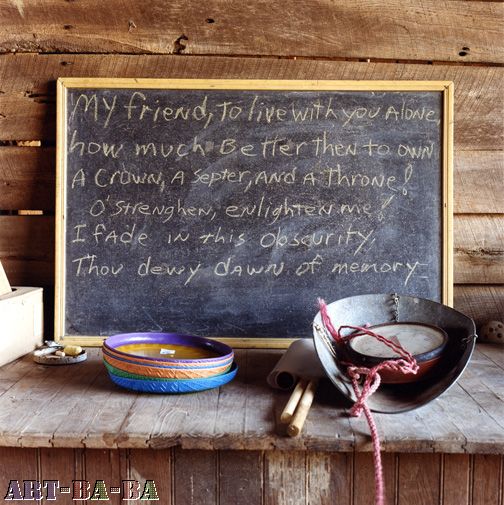 My friend, To live with you Alone,
how much Better then to own
A Crown, A Septer, and A Throne!
O'Strenghen, enlighten me!
I fade in this Obscurity,
Thou dewy dawn of memory_
ART-BA-BA